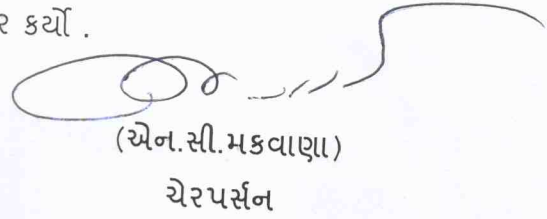 ર કર્યો.
(એન.સી.મકવાણા)
ચેરપર્સન